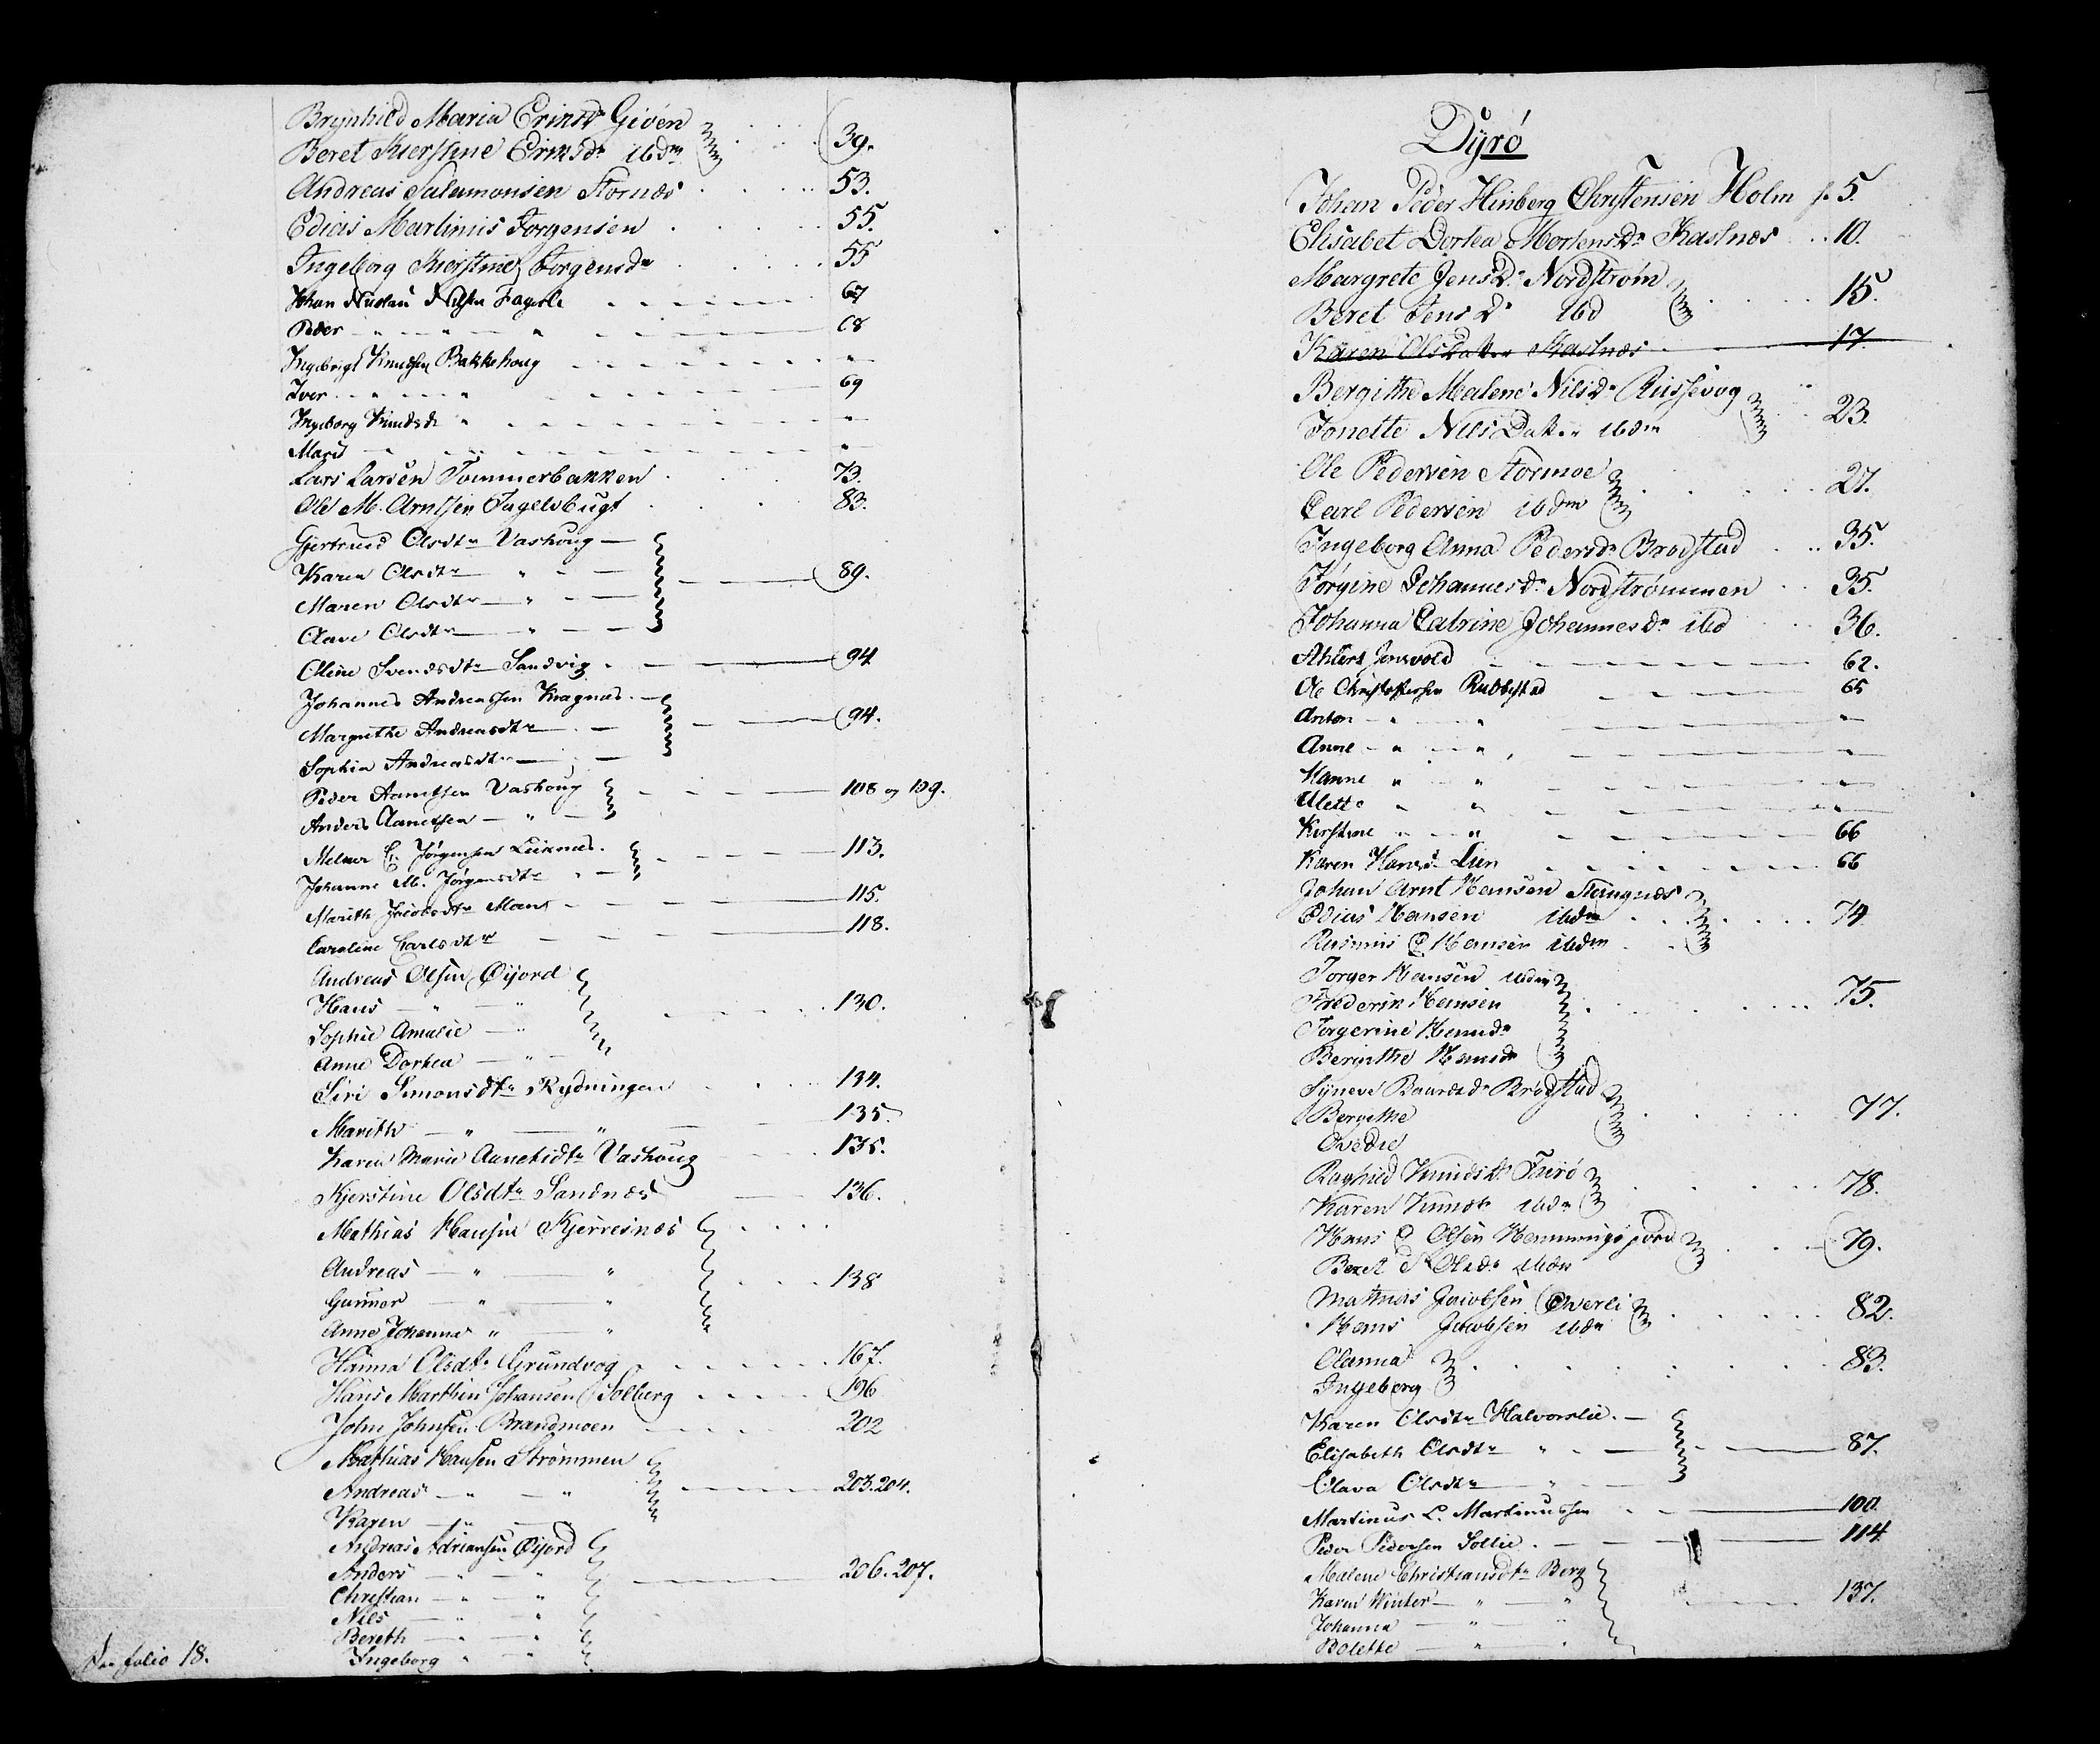 Brynhild Maria Erinsdr Givén
Beret Kierstine Erinsdr ibdm 39.
Andreas Salamonsen Stornæs 53.
Edias Martinus Jørgensen 55.
Ingeborg Kierstine Jørgensdr 55
Johan Nilsen Fagerli 67
Peder " " 68
Ingebrigt Knudsen Bakkehaug "
Iver " " 69
Ingeborg Knudsdr " "
Marit " " "
Lars Larsen Tømmerbakken 73.
Ole M. Arntsen Ingelsbugt 83.
Gjertrued Olsdtr Vashoug
Karen Olsdtr " 89.
Maren Olsdtr "
Olave Olsdtr "
Oline Svendsdtr Sandvig 94
Johannes Andreassen Kragnæs
Margrethe Andreasdtr 94.
Sophia Andreasdtr
Peder Aanetsen Vashoug 108 og 109.
Anders Aanetsen "
Melaur E. Jørgensen Leiknæs. 113.
Johanne M. Jørgensdtr "
Marith Jacobsdtr Moen 115.
Caroline Carlsdtr 118.
Andreas Olsen Øijord
Hans " " 130.
Sophie Amalie "
Anne Dorthea "
Siri Simonsdtr Rydningen 134.
Marith " " 135.
Karen Marie Aanetsdtr Vashoug 135.
Kjerstine Olsdtr Sandnæs 136.
Mathias Hansen Kjerresnæs
Andreas " " 138
Gunner " "
Anne Johanne " "
Hanna Olsdtr Grundvog 167.
Hans Marthin Johansen Solberg 196
John Johnsen Brandmoen 202
Mathias Hansen Strømmen
Andreas " " 203.204.
Karen " "
Andreas Adriansen Øijord
Anders " " 206.207.
Christian " "
Nils " "
Bereth " "
Ingeborg " "
folio 18.
Dyrö
Johan Peder Hinberg Christensen Holm f. 5.
Elisabet Dortea Mortensdr Kastnæs 10.
Margrete Jensdr Nordstrøm
Beret Jensdr ibd 15.
Karen Olsdatter Kastnæs 17.
Bergithe Malene Nilsdr Russevog
Jonette Nilsdatter ibdm 23.
Ole Pedersen Stormoe
Carl Pedersen ibdm 27.
Ingeborg Anna Pedersdr Brøstad 35.
Jørgine Johannesdr Nordstrømmen 35.
Johanna Catrine Johannesdr ibd 36.
Ahlert Jensvold 62.
Ole Christophersen Rubbestad 65
Anton " " "
Anne " " "
Hanne " " "
Olette " " "
Kirstine " " 66
Karen Hansdr Lien 66
Johan Arnt Hansen Stangnæs
Edias Hansen ibdm 74
Rasmus P Hansen ibdm
Jørger Hansen ibdm
Frederik Hansen 75.
Jørgerine Hansdr
Berinthe Hansdr
Syneve Baardsdr Brøstad
Bergithe 77.
Ovedie
Raghild Knudsdr Furö
Karen Knudsdr ibdm 78.
Hans P Olsen Hemmingsjord
Beret S Olsdr ibdm 79.
Mathias Jacobsen Overli
Hans Jacobsen ibdm 82.
Olanna 83.
Ingeborg
Karen Olsdtr Halvorslie.
Elisabeth Olsdtr " 87.
Olava Olsdtr "
Martinus L. Martinussen 100.
Peder Pedersen Sollie. 114
Malene Christiansdtr Berg
Karen Winter " " 137.
Johanna " "
Bolette " "